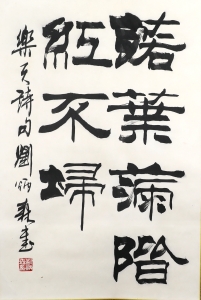 落葉滿階
紅不掃
樂天詩句劉炳森書